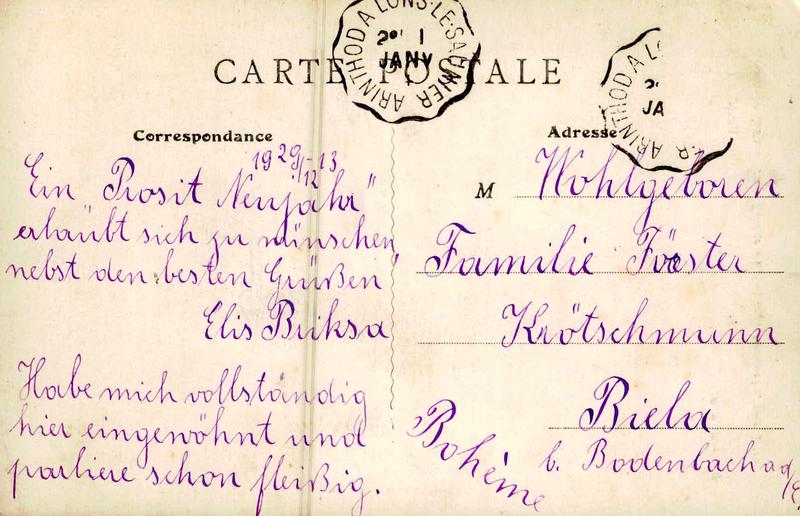 CARTE POSTALE
ARINTHOD A LONS-LE-SAUNIER
1
JANV
ARINTHOD A LO
ER
JA
Correspondance
Adresse
1929/12-13
Ein "Prosit Neujahr"
erlaubt sich zu wünschen
nebst den besten Grüßen
Elis Buksa
Habe mich vollständig
hier eingewöhnt und
parliere schon fleißig.
M Wohlgeboren
Familie Förster
Krötschmann
Biela
b. Bodenbach a d/E
Bohème